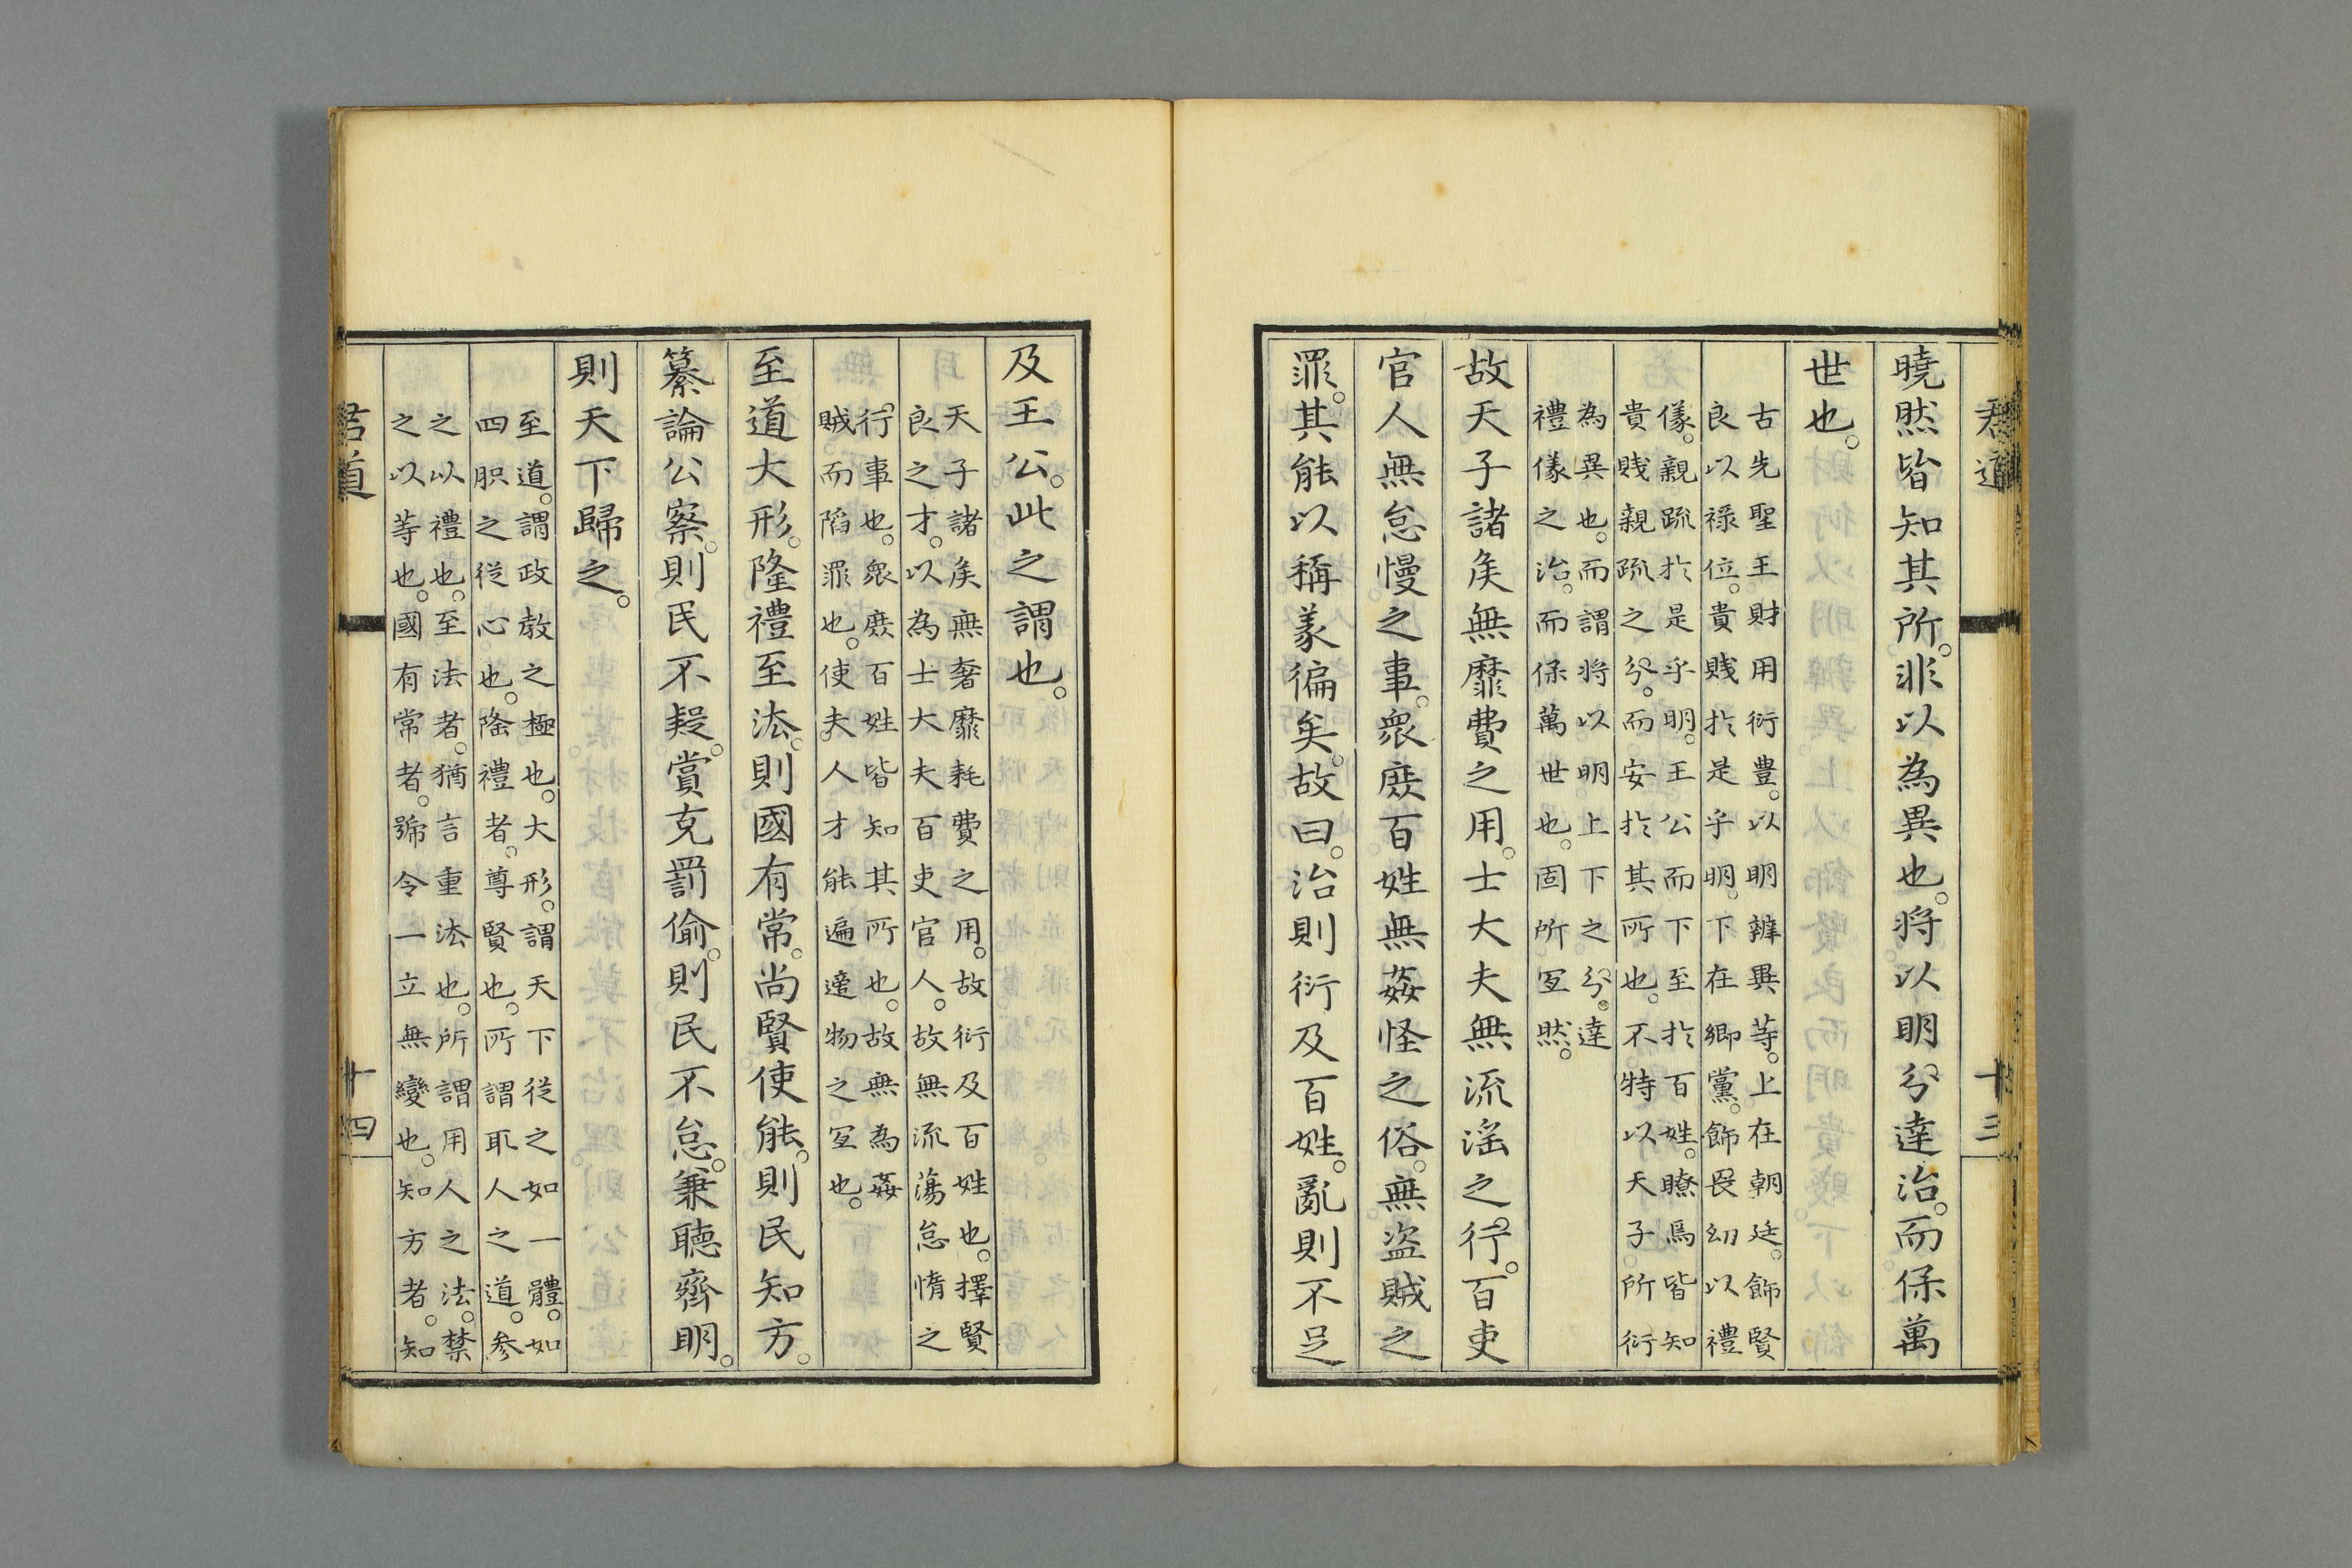 君道 十三
曉然皆知其所。非以為異也。将以明分達治。而保萬
世也。
古先聖王財用衍豊。以明辨異等。上在朝廷。飾賢
良以禄位。貴賤於是乎明。下在鄉黨。飾長幼以禮
儀。親疏於是乎明。王公而下至於百姓。瞭焉皆知
貴賤親疏之分。而安於其所也。不特以天子所衍
為異也。而謂将以明上下之分。達
禮儀之治。而保萬世也。固所宜然。
故天子諸侯無靡費之用。士大夫無流淫之行。百吏
官人無怠慢之事。衆庶百姓無姦怪之俗。無盗賊之
罪。其能以稱義徧矣。故曰。治則衍及百姓。亂則不足
及王公。此之謂也。
天子諸侯無奢靡耗費之用。故衍及百姓也。擇賢
良之才。以為士大夫百吏官人。故無流蕩怠惰之
行事也。衆庶百姓皆知其所也。故無為姦
賊而陷罪也。使夫人才能遍達物之宜也。
至道大形。隆禮至法。則國有常。尚賢使能。則民知方。
纂論公察。則民不疑。賞克罰偷。則民不怠。兼聽齊明。
則天下歸之。
至道。謂政教之極也。大形。謂天下従之如一體。如
四胑之從心也。隆禮者。尊賢也。所謂取人之道。参
之以禮也。至法者。猶言重法也。所謂用人之法。禁
之以等也。國有常者。號令一立無變也。知方者。知
君道 十四